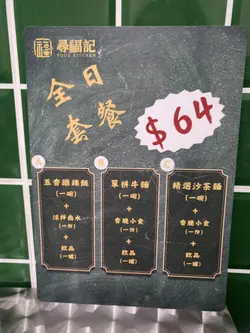 尋福記
FOOK KITCHEN
全日
套餐
$64
A
五香雞翼飯
(一碗)
+
涼拌鹵水
(一份)
+
飲品
(一罐)
B
單拼牛麵
(一碗)
+
香脆小食
(一份)
+
飲品
(一罐)
C
精選沙茶麵
(一碗)
+
香脆小食
(一份)
+
飲品
(一罐)